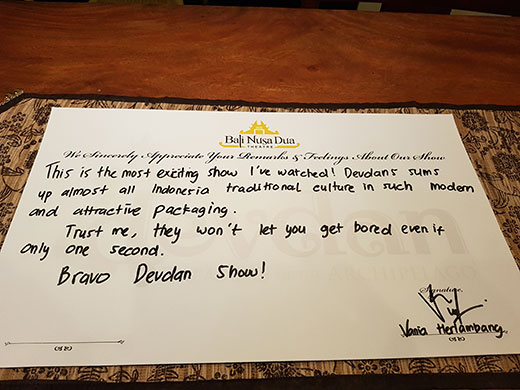 Bali Nusa Dua
THEATRE
We Sincerely Appreciate Your Remarks & Feelings About Our Show
This is the most exciting show I've watched! Devdans sums
up almost all Indonesia traditional culture in such modern
and attractive packaging.
Trust me, they won't let you get bored even if
only one second.
Bravo Devdan Show!
Signature,
Vania Herlambang